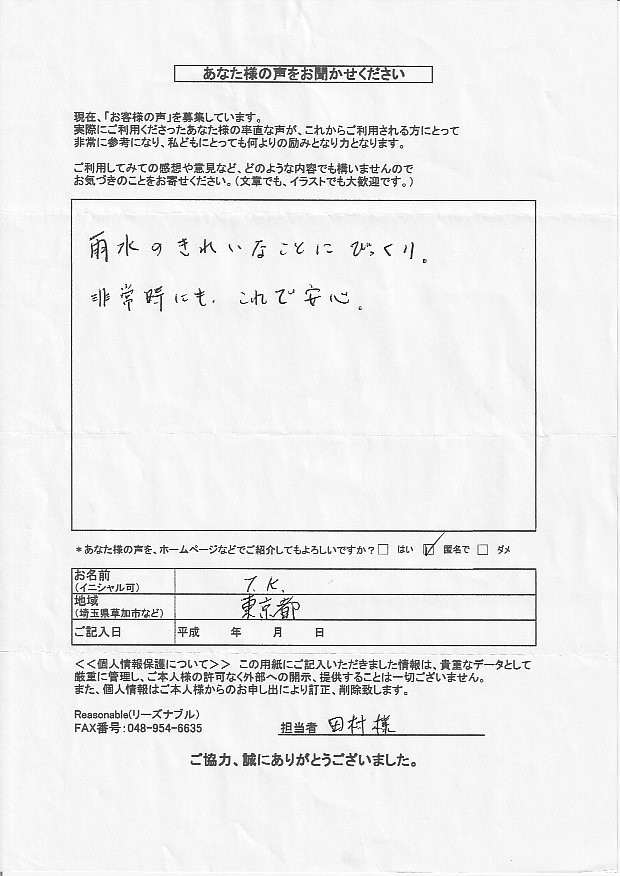 あなた様の声をお聞かせください
現在、「お客様の声」を募集しています。
実際にご利用くださったあなた様の率直な声が、これからご利用される方にとって
非常に参考になり、私どもにとっても何よりの励みとなり力となります。
ご利用してみての感想や意見など、どのような内容でも構いませんので
お気づきのことをお寄せください。(文章でも、イラストでも大歓迎です。)
雨水のきれいなことにびっくり。
非常時にも、これで安心。
*あなた様の声を、ホームページなどでご紹介してもよろしいですか?□ はい ☑ 匿名で □ ダメ
お名前
(イニシャル可)
T.K.
地域
(埼玉県草加市など)
東京都
ご記入日 平成 年 月 日
<<個人情報保護について>> この用紙にご記入いただきました情報は、貴重なデータとして
厳重に管理し、ご本人様の許可なく外部への開示、提供することは一切ございません。
また、個人情報はご本人様からのお申し出により訂正、削除致します。
Reasonable(リーズナブル)
FAX番号:048-954-6635
担当者 田村様
ご協力、誠にありがとうございました。